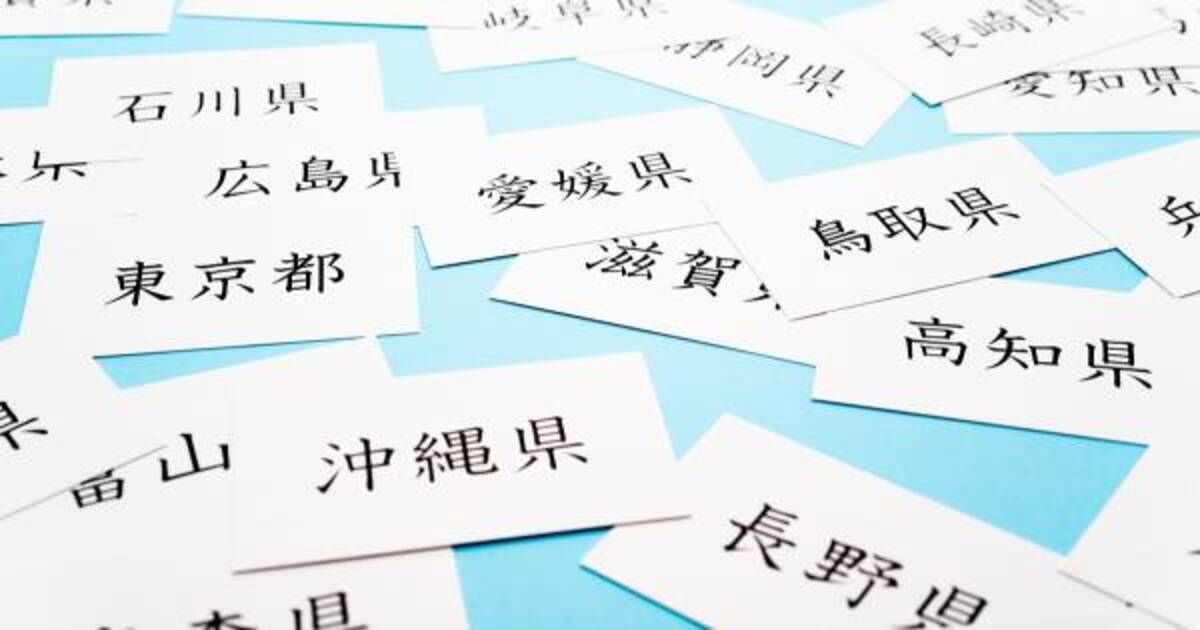 岐阜県
静岡県
長崎県
愛知県
石川県
広島県
愛媛県
鳥取県
滋賀
東京都
高知県
県
山
沖縄県
長野県
県